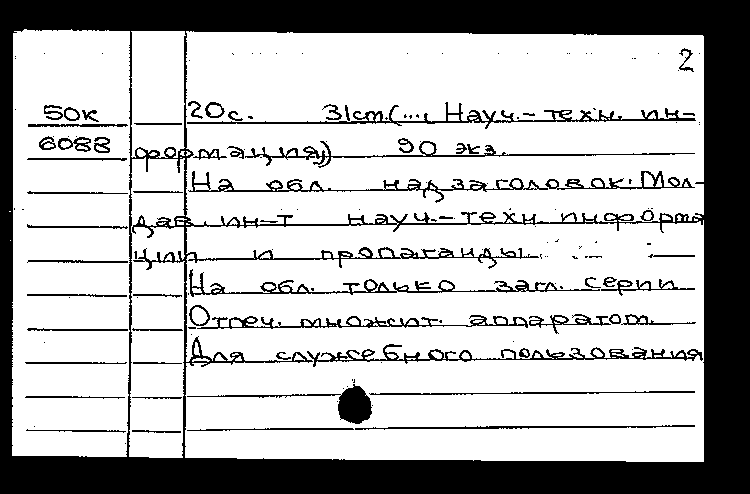 2
50к 20с. 31см.(..., Науч.-техн. ин-
6088 формация) 90 экз.
На обл. надзаголовок: Мол-
дав. ин-т науч.-техн. информа
ции и пропаганды.
На обл. только загл. серии
Отпеч. множит. аппаратом.
Для служебного пользования